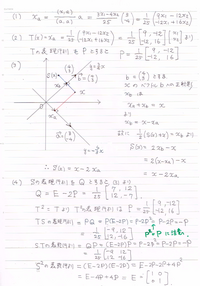 (1) Xa = (x,a)/(a,a) a = (3x₁-4x₂)/25 (3 -4) = 1/25 (9x₁-12x₂ -12x₁+16x₂)
(2) T(x) = Xa = 1/25 (9x₁-12x₂ -12x₁+16x₂) = 1/25 [9, -12 -12, 16] (x₁ x₂) より
Tの表現行列をPとすると P = 1/25 [9, -12 -12, 16]
(3)
S(x)
y = 4/3 x
b = (4 3) とする
xのベクトルbへの正射影
Xb は
Xa + Xb = x
より
Xb = x - Xa
故に 1/2 (S(x)+x) = Xb より
S(x) = 2Xb - x
= 2(x - Xa) - x
= x - 2Xa
∴ S(x) = x - 2Xa
(4) Sの表現行列をQとすると (3)より
Q = E - 2P = 1/25 [7, 24 24, -7]
T² = T より T²の表現行列は P = 1/25 [9, -12 -12, 16]
TSの表現行列は PQ = P(E-2P) = P-2P² = P-2P = -P
= 1/25 [-9, 12 12, -16]
P² = P に注意
STの表現行列は QP = (E-2P)P = P-2P² = P-2P = -P
= 1/25 [-9, 12 12, -16]
S²の表現行列は (E-2P)(E-2P) = E-2P-2P+4P²
= E-4P+4P = E = [1 0 0 1]